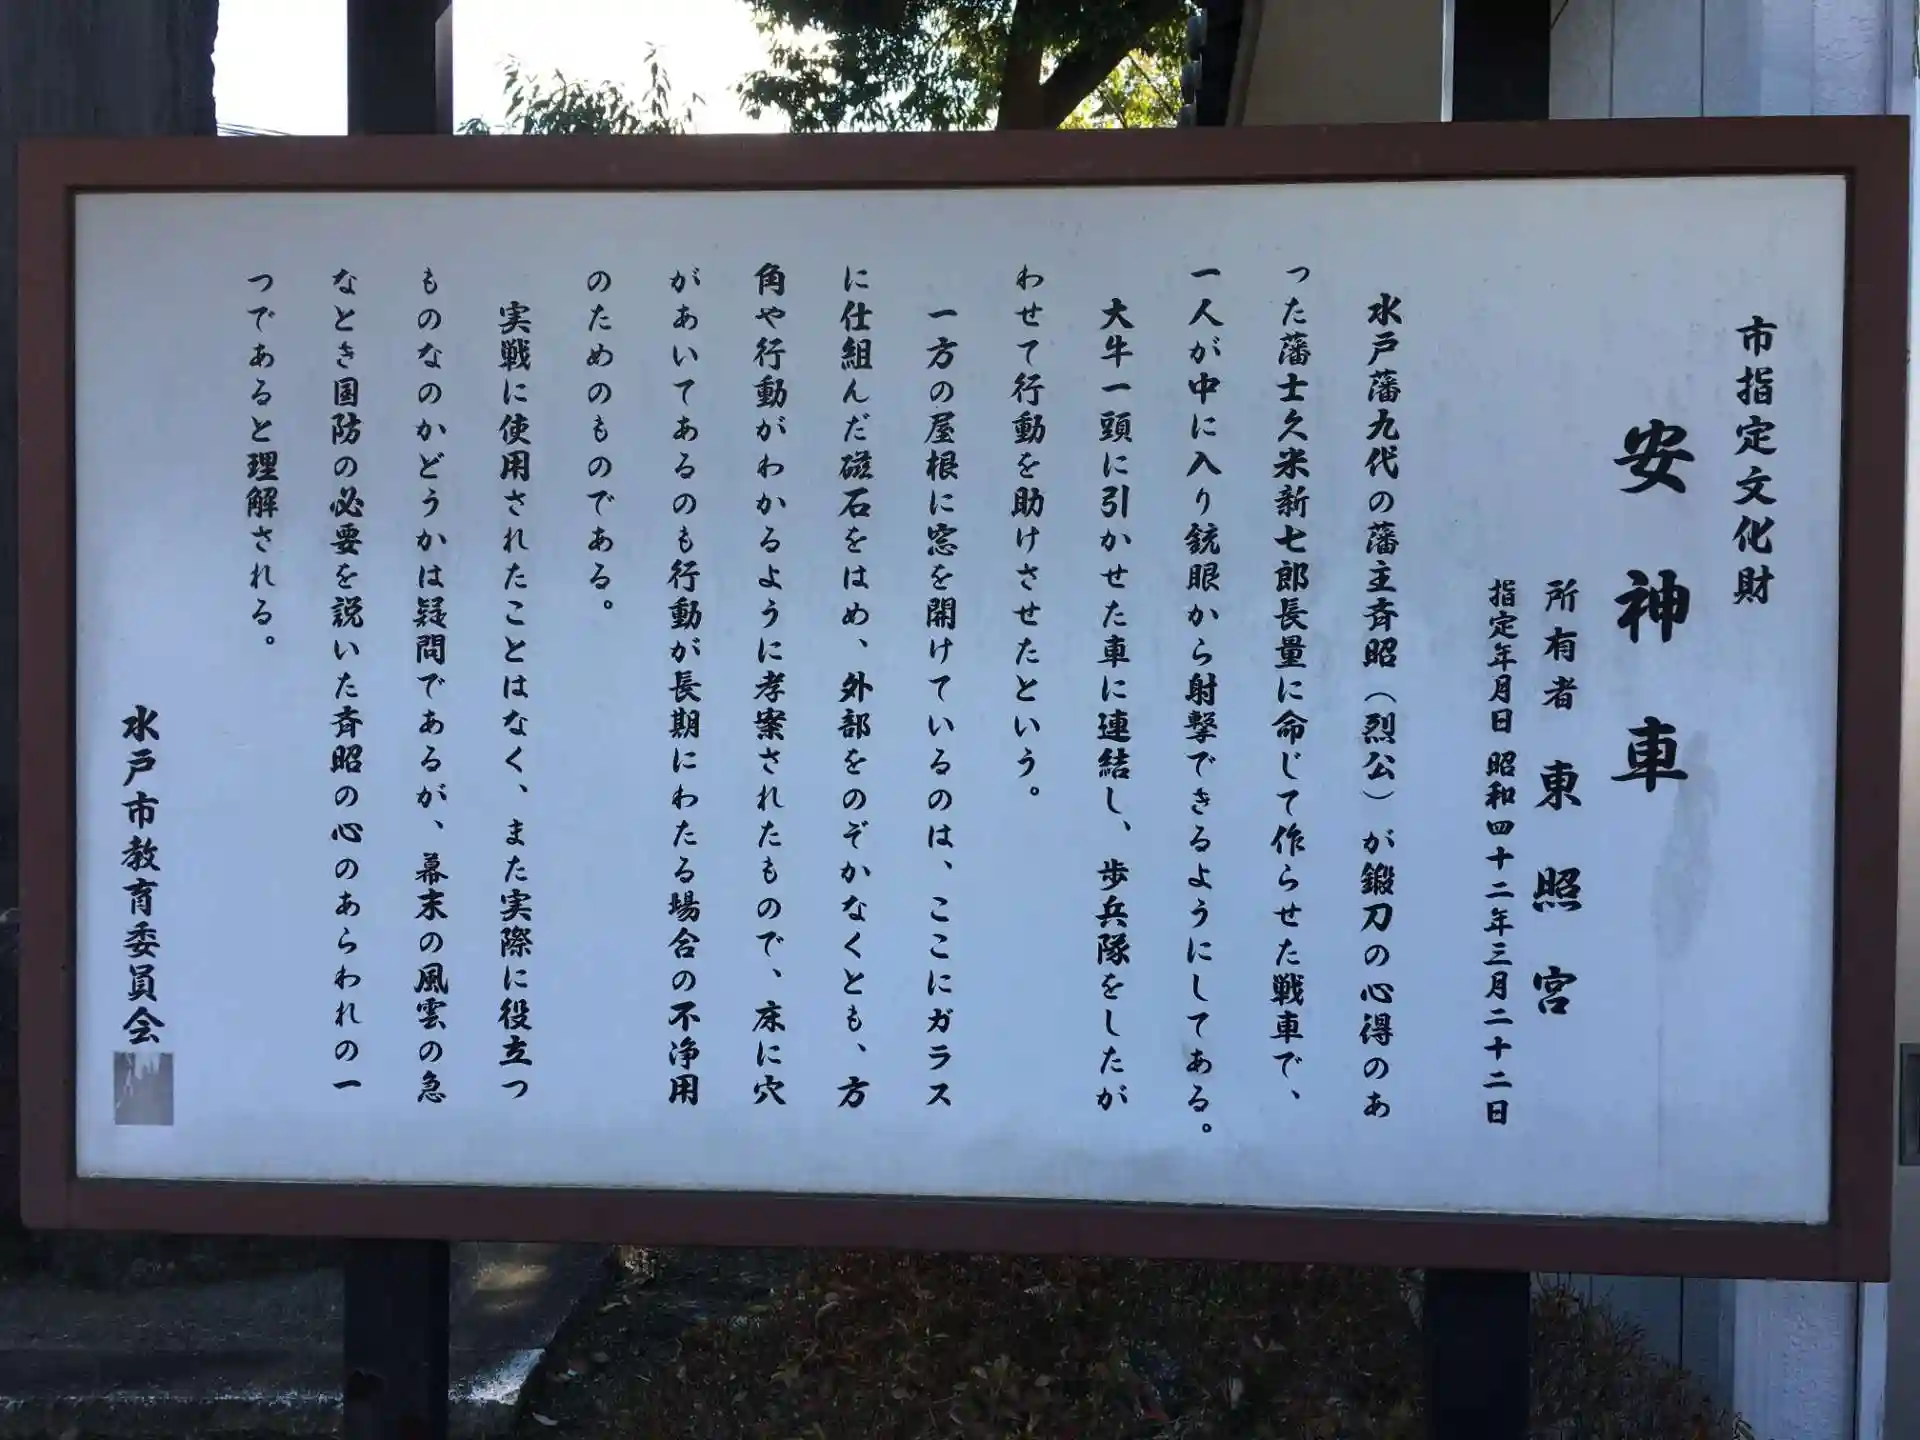 市指定文化財
安神車
所有者 東照宮
指定年月日 昭和四十二年三月二十二日
水戸藩九代の藩主斉昭（烈公）が鍛刀の心得のあ
った藩士久米新七郎長量に命じて作らせた戦車で、
一人が中に入り銃眼から射撃できるようにしてある。
大牛一頭に引かせた車に連結し、歩兵隊をしたが
わせて行動を助けさせたという。
一方の屋根に窓を開けているのは、ここにガラス
に仕組んだ磁石をはめ、外部をのぞかなくとも、方
角や行動がわかるように孝案されたもので、床に穴
があいてあるのも行動が長期にわたる場合の不浄用
のためのものである。
実戦に使用されたことはなく、また実際に役立つ
ものなのかどうかは疑問であるが、幕末の風雲の急
なとき国防の必要を説いた斉昭の心のあらわれの一
つであると理解される。
水戸市教育委員会